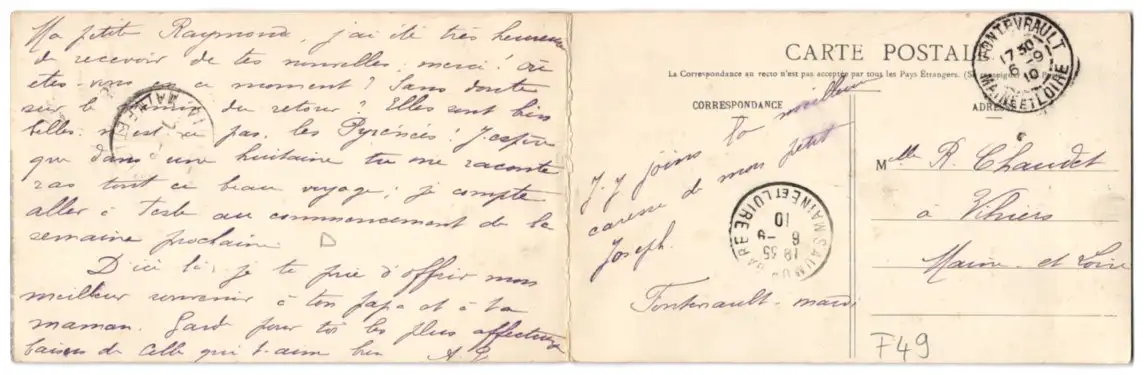 Ma petite Raymonde, j'ai été très heureuse
de recevoir de tes nouvelles; merci! Où
êtes-vous en ce moment? Sans doute
sur le chemin du retour? Elles sont bien
belles, n'est ce pas, les Pyrénées! J'espère
que dans une huitaine tu me raconte
ras tout ce beau voyage; je compte
aller à au commencement de la
semaine prochaine.
D'ici là, je te prie d'offrir mon
meilleur souvenir à ton papa et à ta
maman. Garde pour toi les plus affectueux
baisers de celle qui t'aime bien A
CARTE POSTAL
La Correspondance au recto n'est pas acceptée par tous les Pays Etrangers. (Se
CORRESPONDANCE
ADRES
J'y joins la meilleure
caresse de mon petit
Joseph.
Fontevrault - mardi
Melle R. Chaudet
à Vihiers
Maine-et-Loire
F49
FONTEVRAULT
17 30
6 -9
10
MAINE ET LOIRE
SAUMUR GARE
18 35
6 -9
10
MAINE ET LOIRE